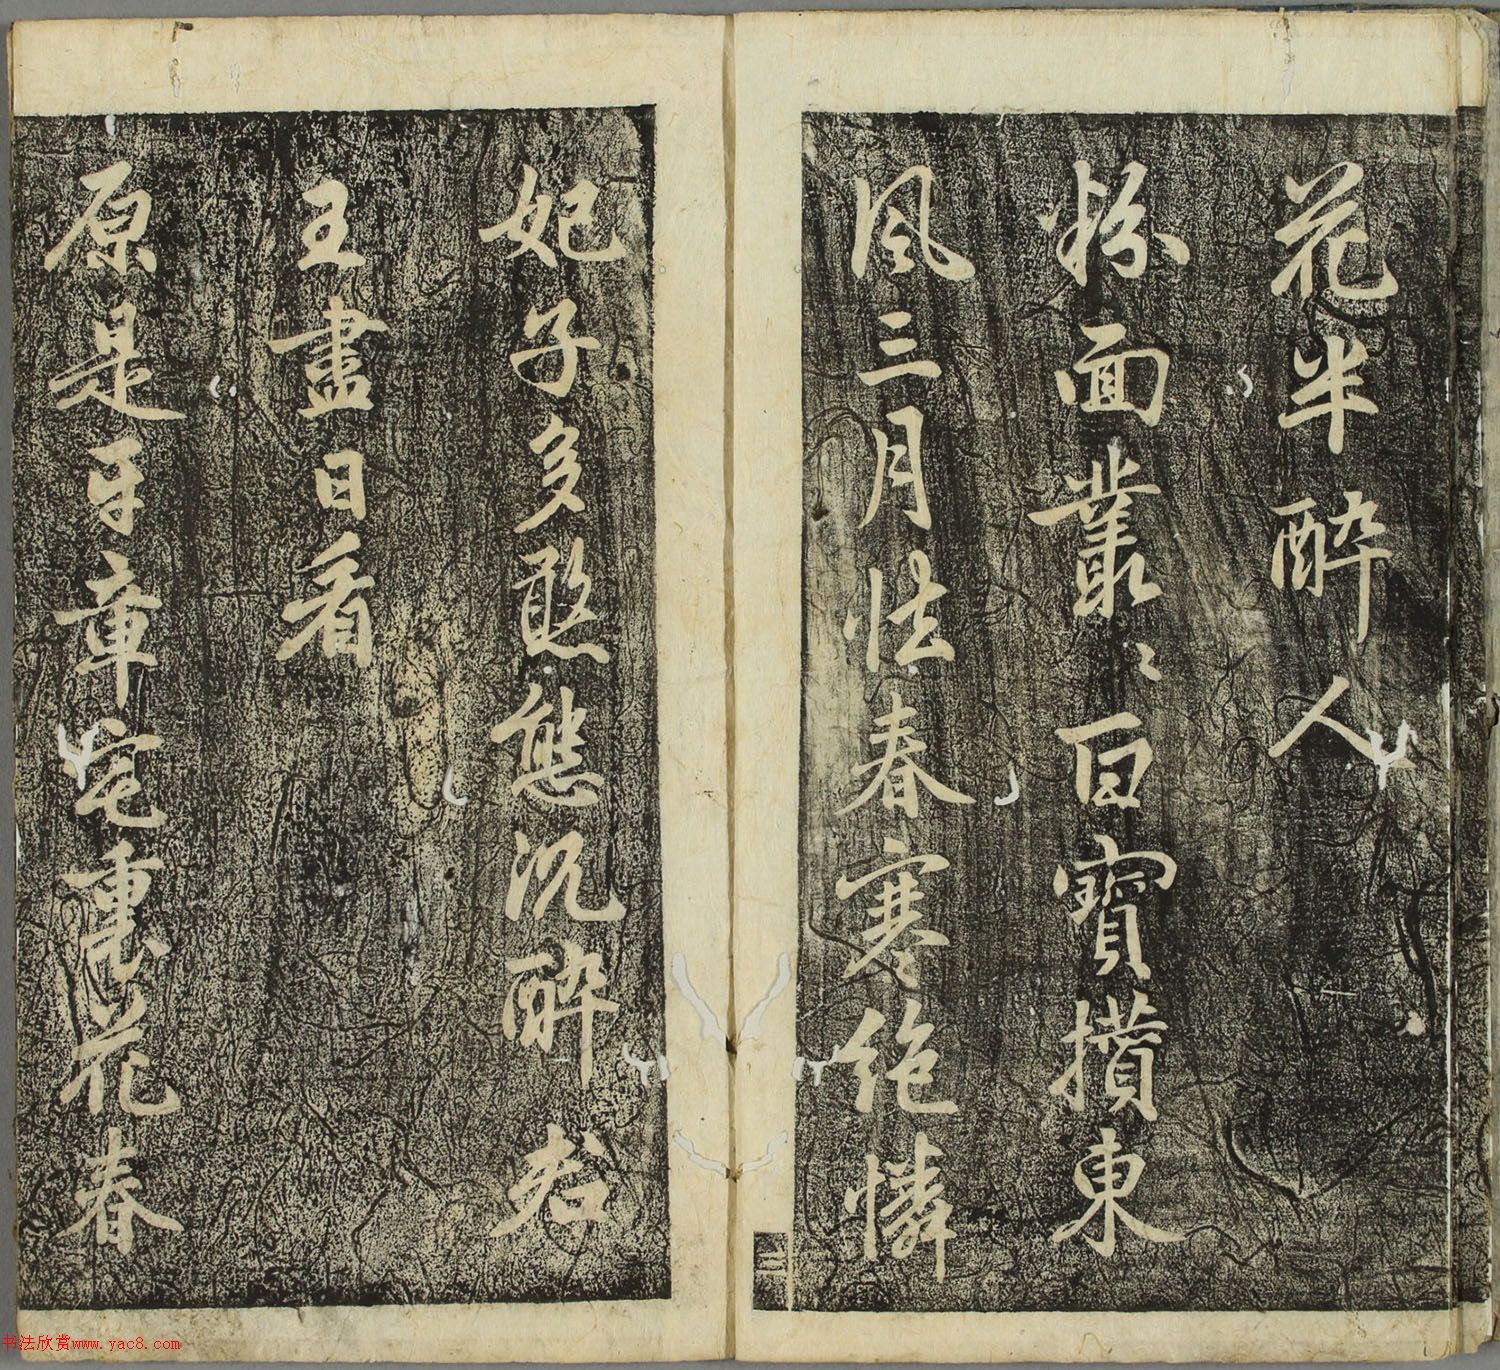 花半醉人
粉面叢々百寶攢東
風三月怯春寒絶憐
妃子多憨態沉醉君
王盡日看
原是平章宅裏花春
书法欣赏www.yac8.com